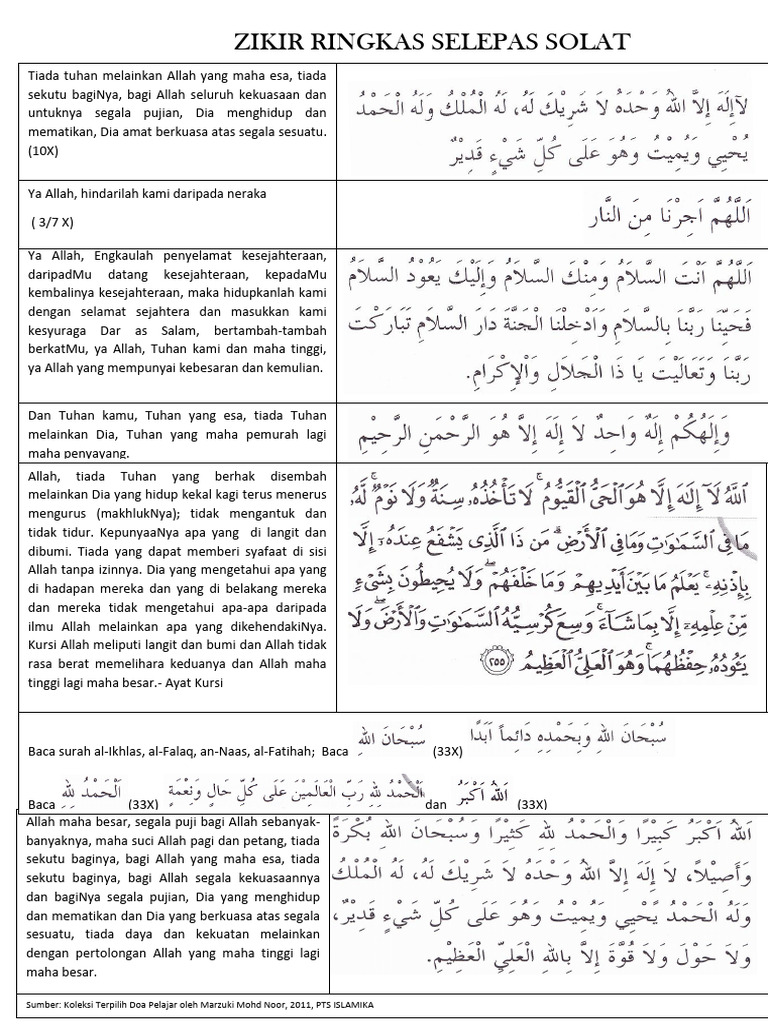 ZIKIR RINGKAS SELEPAS SOLAT
Tiada tuhan melainkan Allah yang maha esa, tiada
sekutu bagiNya, bagi Allah seluruh kekuasaan dan
untuknya segala pujian, Dia menghidup dan
mematikan, Dia amat berkuasa atas segala sesuatu.
(10X)
لآإِلَهَ إِلاَّ اللهُ وَحْدَهُ لاَ شَرِيْكَ لَهُ، لَهُ الْمُلْكُ وَلَهُ الْحَمْدُ
يُحْيِي وَيُمِيْتُ وَهُوَ عَلَى كُلِّ شَيْءٍ قَدِيْرٌ
Ya Allah, hindarilah kami daripada neraka
( 3/7 X)
اَللَّهُمَّ اَجِرْنَا مِنَ النَّار
Ya Allah, Engkaulah penyelamat kesejahteraan,
daripadMu datang kesejahteraan, kepadaMu
kembalinya kesejahteraan, maka hidupkanlah kami
dengan selamat sejahtera dan masukkan kami
kesyuraga Dar as Salam, bertambah-tambah
berkatMu, ya Allah, Tuhan kami dan maha tinggi,
ya Allah yang mempunyai kebesaran dan kemulian.
اَللَّهُمَّ اَنْتَ السَّلاَمُ وَمِنْكَ السَّلاَمُ وَإِلَيْكَ يَعُوْدُ السَّلاَمُ
فَحَيِّنَا رَبَّنَا بِالسَّلاَمِ وَاَدْخِلْنَا الْجَنَّةَ دَارَ السَّلاَمِ تَبَارَكْتَ
رَبَّنَا وَتَعَالَيْتَ يَا ذَا الْجَلاَلِ وَاْلإِكْرَامِ.
Dan Tuhan kamu, Tuhan yang esa, tiada Tuhan
melainkan Dia, Tuhan yang maha pemurah lagi
maha penyayang.
وَإِلَهُكُمْ إِلَهٌ وَاحِدٌ لاَ إِلَهَ إِلاَّ هُوَ الرَّحْمَنِ الرَّحِيْمِ
Allah, tiada Tuhan yang berhak disembah
melainkan Dia yang hidup kekal kagi terus menerus
mengurus (makhlukNya); tidak mengantuk dan
tidak tidur. KepunyaaNya apa yang di langit dan
dibumi. Tiada yang dapat memberi syafaat di sisi
Allah tanpa izinnya. Dia yang mengetahui apa yang
di hadapan mereka dan yang di belakang mereka
dan mereka tidak mengetahui apa-apa daripada
ilmu Allah melainkan apa yang dikehendakiNya.
Kursi Allah meliputi langit dan bumi dan Allah tidak
rasa berat memelihara keduanya dan Allah maha
tinggi lagi maha besar.- Ayat Kursi
ٱللَّهُ لَآ إِلَٰهَ إِلَّا هُوَ ٱلْحَىُّ ٱلْقَيُّومُ ۚ لَا تَأْخُذُهُۥ سِنَةٌ وَلَا نَوْمٌ ۚ لَّهُۥ
مَا فِى ٱلسَّمَٰوَٰتِ وَمَا فِى ٱلْأَرْضِ ۗ مَن ذَا ٱلَّذِى يَشْفَعُ عِندَهُۥٓ إِلَّا
بِإِذْنِهِۦ ۚ يَعْلَمُ مَا بَيْنَ أَيْدِيهِمْ وَمَا خَلْفَهُمْ ۖ وَلَا يُحِيطُونَ بِشَىْءٍ
مِّنْ عِلْمِهِۦٓ إِلَّا بِمَا شَآءَ ۚ وَسِعَ كُرْسِيُّهُ ٱلسَّمَٰوَٰتِ وَٱلْأَرْضَ ۖ وَلَا
يَـُٔودُهُۥ حِفْظُهُمَا ۚ وَهُوَ ٱلْعَلِىُّ ٱلْعَظِيمُ ٢٥٥
Baca surah al-Ikhlas, al-Falaq, an-Naas, al-Fatihah; Baca سُبْحَانَ اللهِ (33X) سُبْحَانَ اللهِ وَبِحَمْدِهِ دَائِماً اَبَدًا
Baca اَلْحَمْدُ لِلّهِ (33X) اَلْحَمْدُ لِلّهِ رَبِّ الْعَالَمِيْنَ عَلَى كُلِّ حَالٍ وَنِعْمَةٍ dan اَللهُ اَكْبَرُ (33X)
Allah maha besar, segala puji bagi Allah sebanyak-
banyaknya, maha suci Allah pagi dan petang, tiada
sekutu baginya, bagi Allah yang maha esa, tiada
sekutu baginya, bagi Allah segala kekuasaannya
dan bagiNya segala pujian, Dia yang menghidup
dan mematikan dan Dia yang berkuasa atas segala
sesuatu, tiada daya dan kekuatan melainkan
dengan pertolongan Allah yang maha tinggi lagi
maha besar.
اَللهُ اَكْبَرُ كَبِيْرًا وَالْحَمْدُ لِلّهِ كَثِيْرًا وَسُبْحَانَ اللهِ بُكْرَةً
وَأَصِيْلاً، لاَ إِلَهَ إِلاَّ اللهُ وَحْدَهُ لاَ شَرِيْكَ لَهُ، لَهُ الْمُلْكُ
وَلَهُ الْحَمْدُ يُحْيِي وَيُمِيْتُ وَهُوَ عَلَى كُلِّ شَيْءٍ قَدِيْرٌ،
وَلاَ حَوْلَ وَلاَ قُوَّةَ إِلاَّ بِاللهِ الْعَلِيِّ الْعَظِيْمِ.
Sumber: Koleksi Terpilih Doa Pelajar oleh Marzuki Mohd Noor, 2011, PTS ISLAMIKA